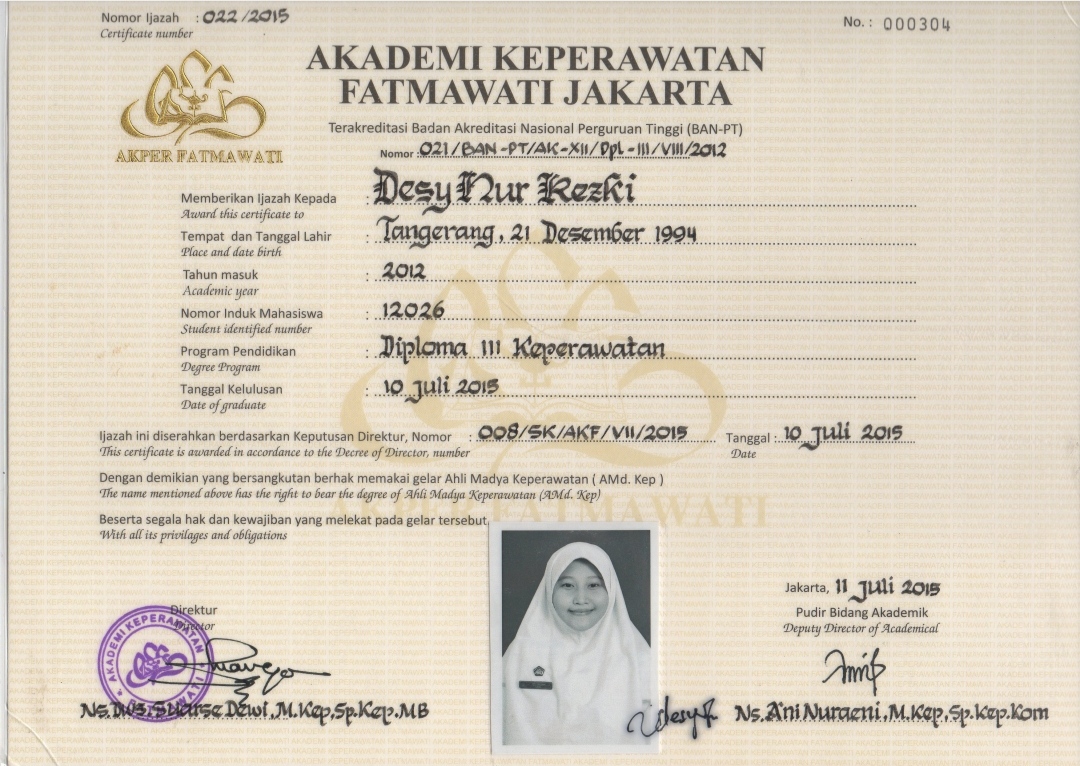 Nomor Ijazah : 022/2015
Certificate number
No. : 000304
AKADEMI KEPERAWATAN
FATMAWATI JAKARTA
AKPER FATMAWATI
Terakreditasi Badan Akreditasi Nasional Perguruan Tinggi (BAN-PT)
Nomor : 021/BAN-PT/AK-XII/Dpl-III/VIII/2012
Memberikan Ijazah Kepada : Desy Nur Rezki
Award this certificate to
Tempat dan Tanggal Lahir : Tangerang, 21 Desember 1994
Place and date birth
Tahun masuk : 2012
Academic year
Nomor Induk Mahasiswa : 12026
Student identified number
Program Pendidikan : Diploma III Keperawatan
Degree Program
Tanggal Kelulusan : 10 Juli 2015
Date of graduate
Ijazah ini diserahkan berdasarkan Keputusan Direktur, Nomor : 008/SK/AKF/VII/2015 Tanggal : 10 Juli 2015
This certificate is awarded in accordance to the Decree of Director, number Date
Dengan demikian yang bersangkutan berhak memakai gelar Ahli Madya Keperawatan ( AMd. Kep )
The name mentioned above has the right to bear the degree of Ahli Madya Keperawatan (AMd. Kep)
AKPER FATMAWATI
Beserta segala hak dan kewajiban yang melekat pada gelar tersebut
With all its privilages and obligations
Jakarta, 11 Juli 2015
Direktur
Director
Pudir Bidang Akademik
Deputy Director of Academical
AKADEMI KEPERAWATAN
Ns. DWS. Suarse Dewi, M.Kep,Sp.Kep.MB
Ns. Ani Nuraeni, M.Kep,Sp.Kep.Kom